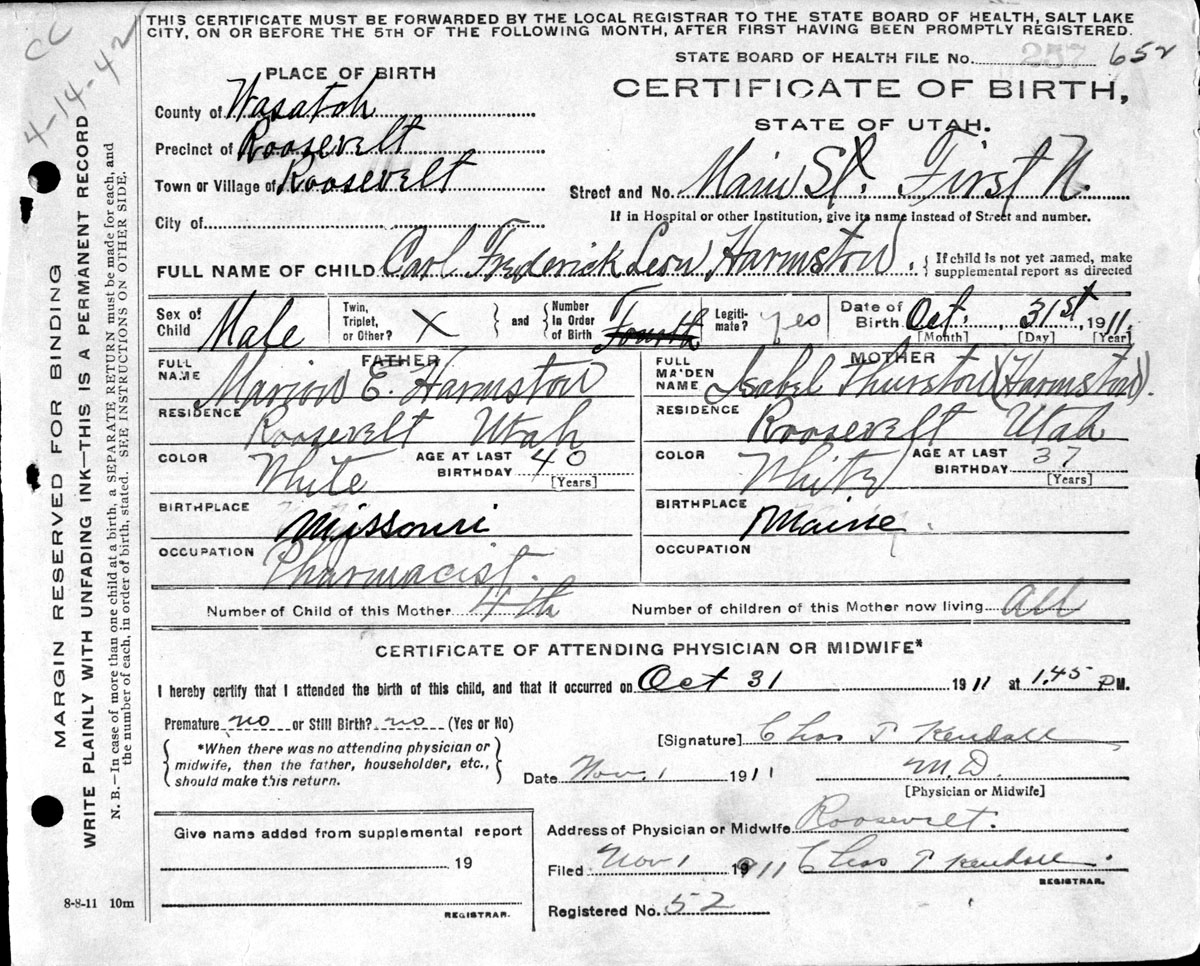 THIS CERTIFICATE MUST BE FORWARDED BY THE LOCAL REGISTRAR TO THE STATE BOARD OF HEALTH, SALT LAKE
CITY, ON OR BEFORE THE 5TH OF THE FOLLOWING MONTH, AFTER FIRST HAVING BEEN PROMPTLY REGISTERED.
CC
4-14-42
STATE BOARD OF HEALTH FILE No. 257 652
PLACE OF BIRTH
CERTIFICATE OF BIRTH,
STATE OF UTAH.
County of Wasatch
Precinct of Roosevelt
Town or Village of Roosevelt
Street and No. Main St. First N.
If in Hospital or other Institution, give its name instead of Street and number.
City of
FULL NAME OF CHILD Carl Frederick Leon Harmston. { If child is not yet named, make
supplemental report as directed
Sex of Child Male Twin, Triplet, or Other? X } and { Number in Order of Birth Fourth Legiti-mate? yes Date of Birth Oct. 31st 1911
[Month] [Day] [Year]
FATHER MOTHER
FULL NAME Marion E. Harmston FULL MAIDEN NAME Isabel Thurston (Harmston).
RESIDENCE Roosevelt Utah RESIDENCE Roosevelt Utah
COLOR White AGE AT LAST BIRTHDAY 40 [Years] COLOR White AGE AT LAST BIRTHDAY 37 [Years]
BIRTHPLACE Missouri BIRTHPLACE Maine
OCCUPATION Pharmacist. OCCUPATION
Number of Child of this Mother 4th Number of children of this Mother now living All
CERTIFICATE OF ATTENDING PHYSICIAN OR MIDWIFE*
I hereby certify that I attended the birth of this child, and that it occurred on Oct 31 1911 at 1.45 P M.
Premature no or Still Birth? no (Yes or No)
*When there was no attending physician or
midwife, then the father, householder, etc.,
should make this return.
[Signature] Chas T Kendall
Date Nov. 1 1911 M.D.
[Physician or Midwife]
Give name added from supplemental report
19
REGISTRAR.
Address of Physician or Midwife Roosevelt.
Filed Nov 1 1911 Chas T Kendall.
REGISTRAR.
Registered No. 52
8-8-11 10m
MARGIN RESERVED FOR BINDING
WRITE PLAINLY WITH UNFADING INK—THIS IS A PERMANENT RECORD
N. B.—In case of more than one child at a birth, a SEPARATE RETURN must be made for each, and
the number of each, in order of birth, stated. SEE INSTRUCTIONS ON OTHER SIDE.